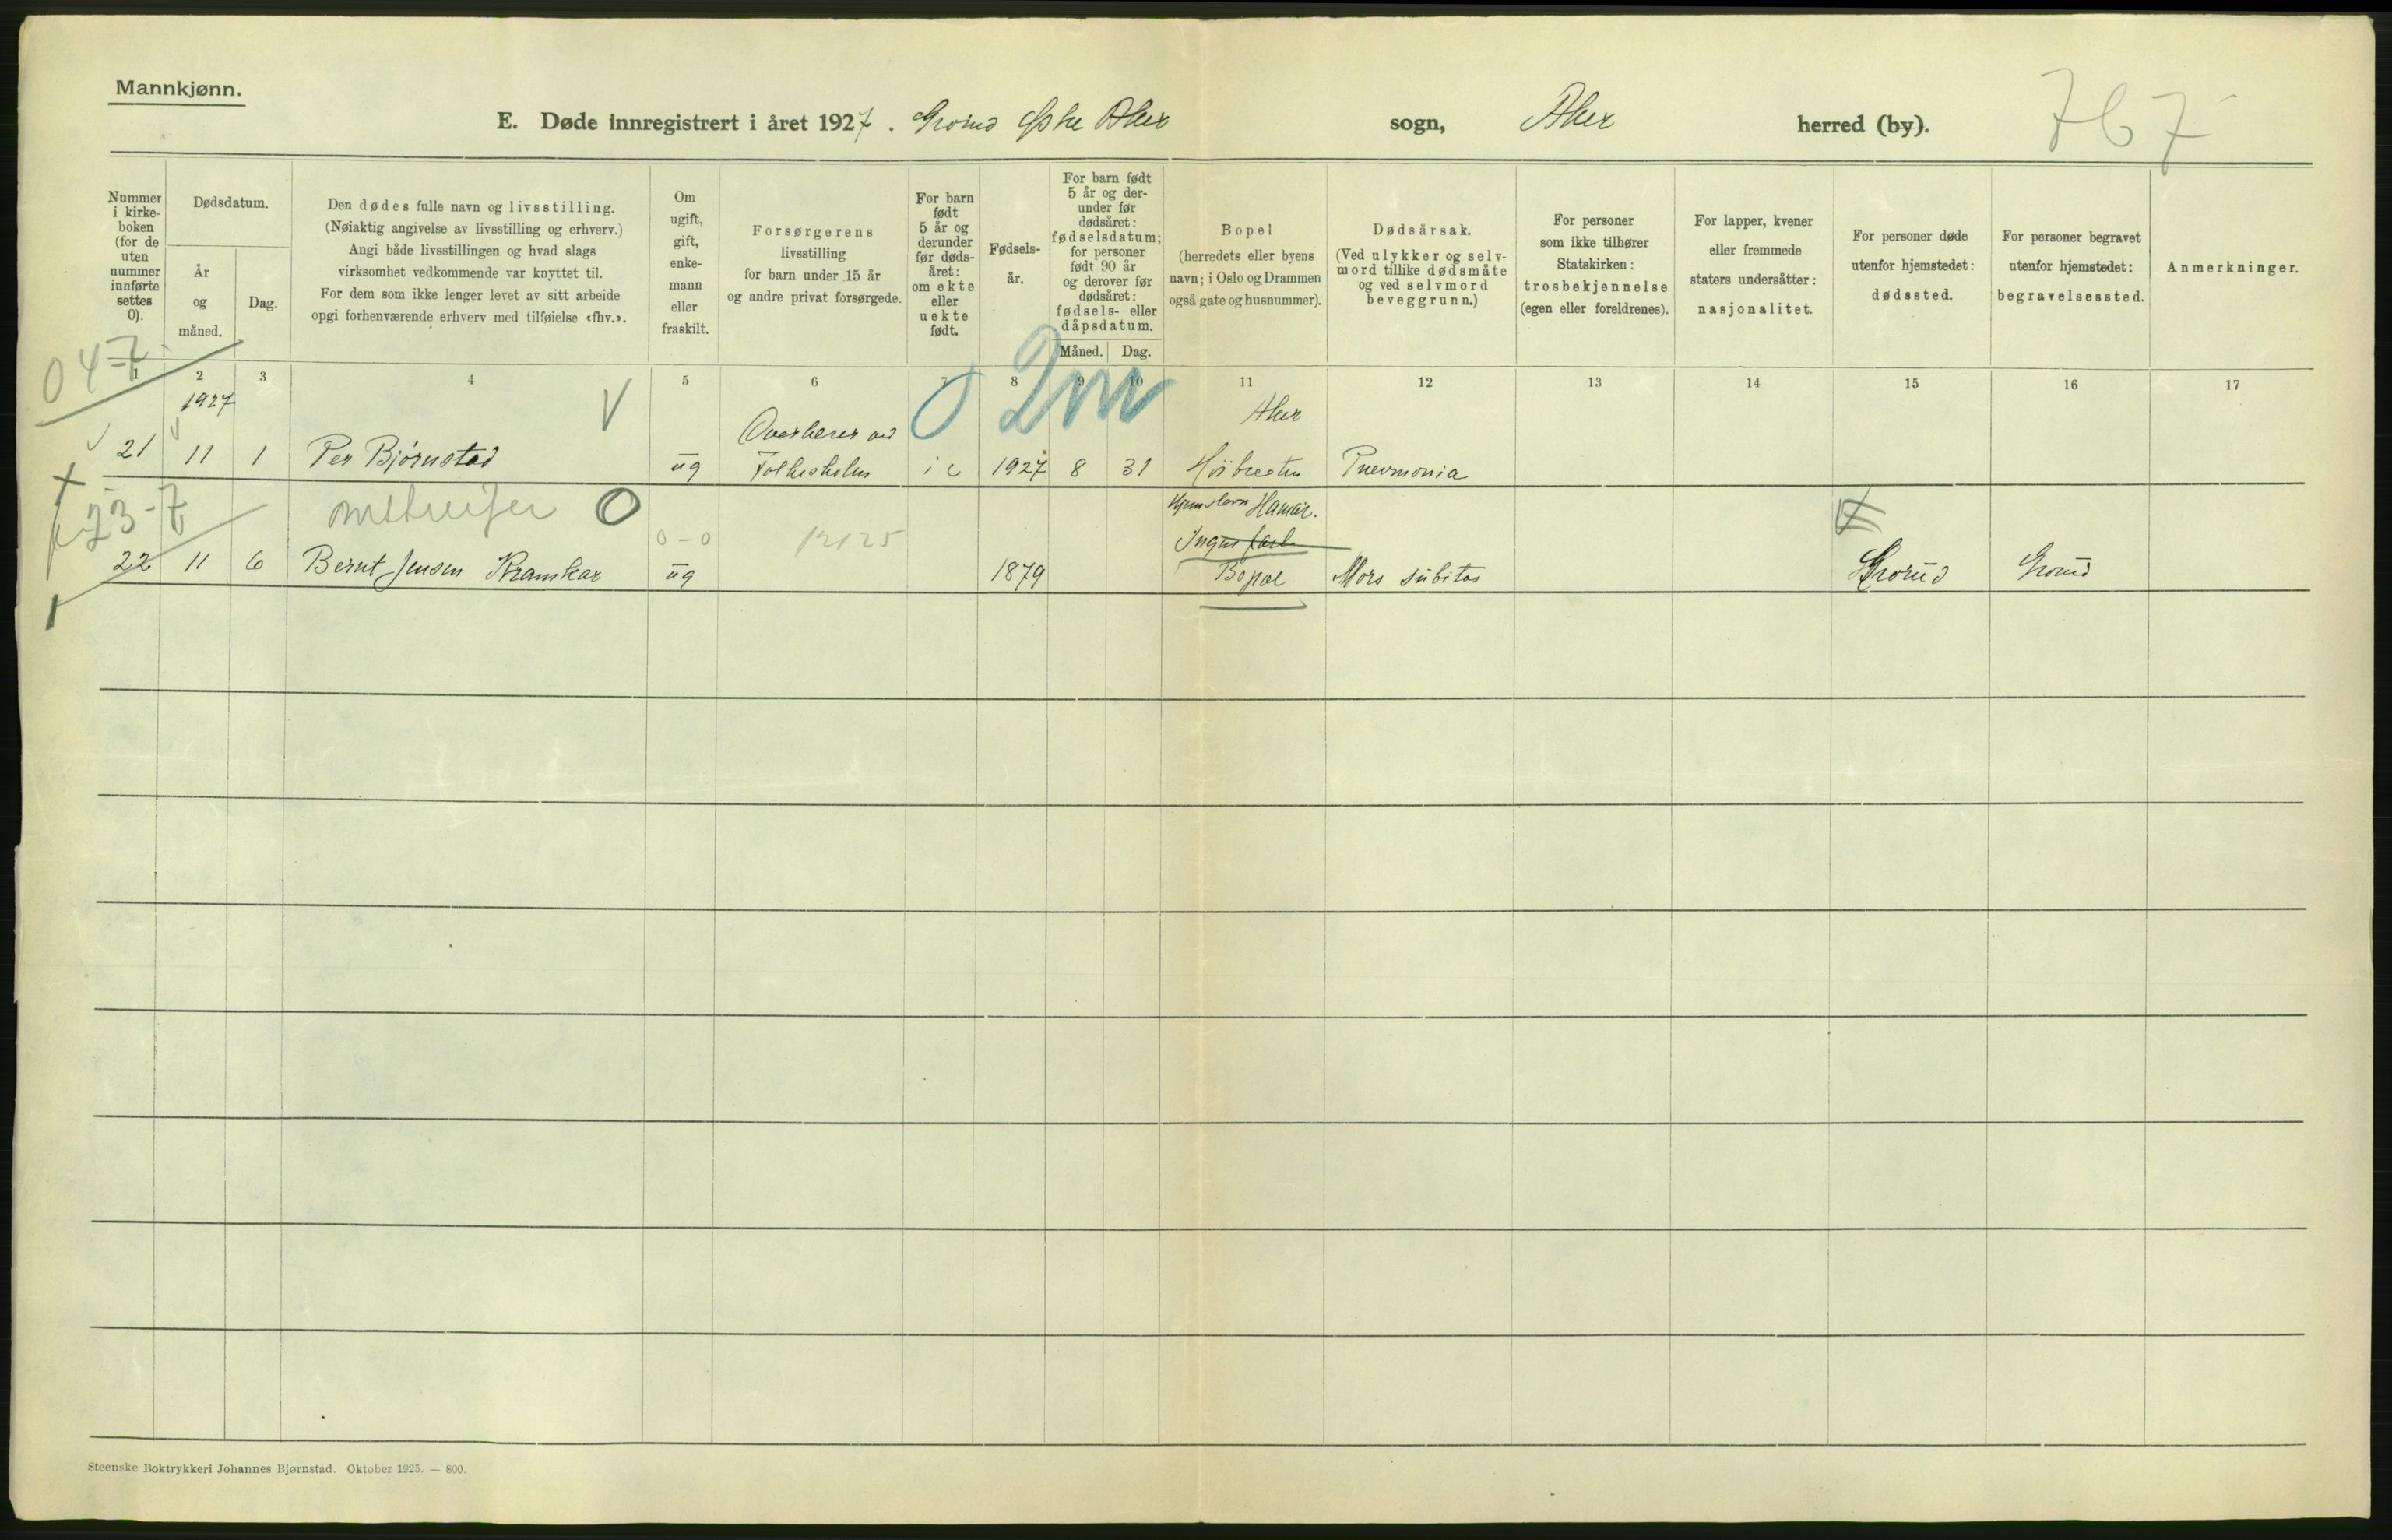 Mannkjønn.
E. Døde innregistrert i året 1927. Grorud Østre Aker sogn, Aker herred (by).
767
Nummer i kirke-boken (for de uten nummer innførte settes 0).
Dødsdatum.
År og måned.
Dag.
Den dødes fulle navn og livsstilling.
(Nøiaktig angivelse av livsstilling og erhverv.)
Angi både livsstillingen og hvad slags
virksomhet vedkommende var knyttet til.
For dem som ikke lenger levet av sitt arbeide
opgi forhenværende erhverv med tilføielse «fhv.».
Om ugift, gift, enke-mann eller fraskilt.
Forsørgerens
livsstilling
for barn under 15 år
og andre privat forsørgede.
For barn født 5 år og derunder før døds-året: om ekte eller uekte født.
Fødsels-år.
For barn født 5 år og der-under før dødsåret: fødselsdatum; for personer født 90 år og derover før dødsåret: fødsels- eller dåpsdatum.
Måned. Dag.
Bopel
(herredets eller byens
navn; i Oslo og Drammen
også gate og husnummer).
Dødsårsak.
(Ved ulykker og selv-
mord tillike dødsmåte
og ved selvmord
beveggrunn.)
For personer
som ikke tilhører
Statskirken:
trosbekjennelse
(egen eller foreldrenes).
For lapper, kvener
eller fremmede
staters undersåtter:
nasjonalitet.
For personer døde
utenfor hjemstedet:
dødssted.
For personer begravet
utenfor hjemstedet:
begravelsessted.
Anmerkninger.
04-7
1 2 3 4 5 6 7 8 9 10 11 12 13 14 15 16 17
0 2m
1927
Aker
21 11 1 Per Bjørnstad ug Overlærer ved Folkeskolen 1927 8 31 Høibråten Pneumonia
23-7
0-0
Hamar.
Ingen fast
22 11 6 Bernt Jensen Kramkar ug 1879 Bopæl Mors subitas Grorud Grorud
Steenske Boktrykkeri Johannes Bjørnstad. Oktober 1925. — 800.